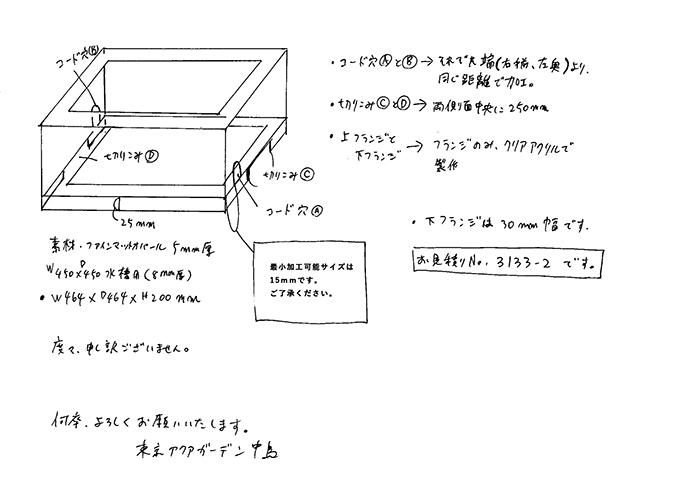 コード穴Ⓑ
・コード穴ⒶとⒷ→それぞれ端(右横、左奥)より、
同じ距離で加工。
・切りこみⒸとⒹ→両側面中央に250mm
・上フランジと
下フランジ→フランジのみ、クリアアクリルで
製作
切りこみⒹ
切りこみⒸ
コード穴Ⓐ
25mm
・下フランジは30mm幅です。
お見積りNo. 3133-2 です。
素材・ファインマットオパール 5mm厚
W450×D450 水槽用(8mm厚)
・W464×D464×H200mm
最小加工可能サイズは
15mmです。
ご了承ください。
度々、申し訳ございません。
何卒、よろしくお願いいたします。
東京アクアガーデン 中島